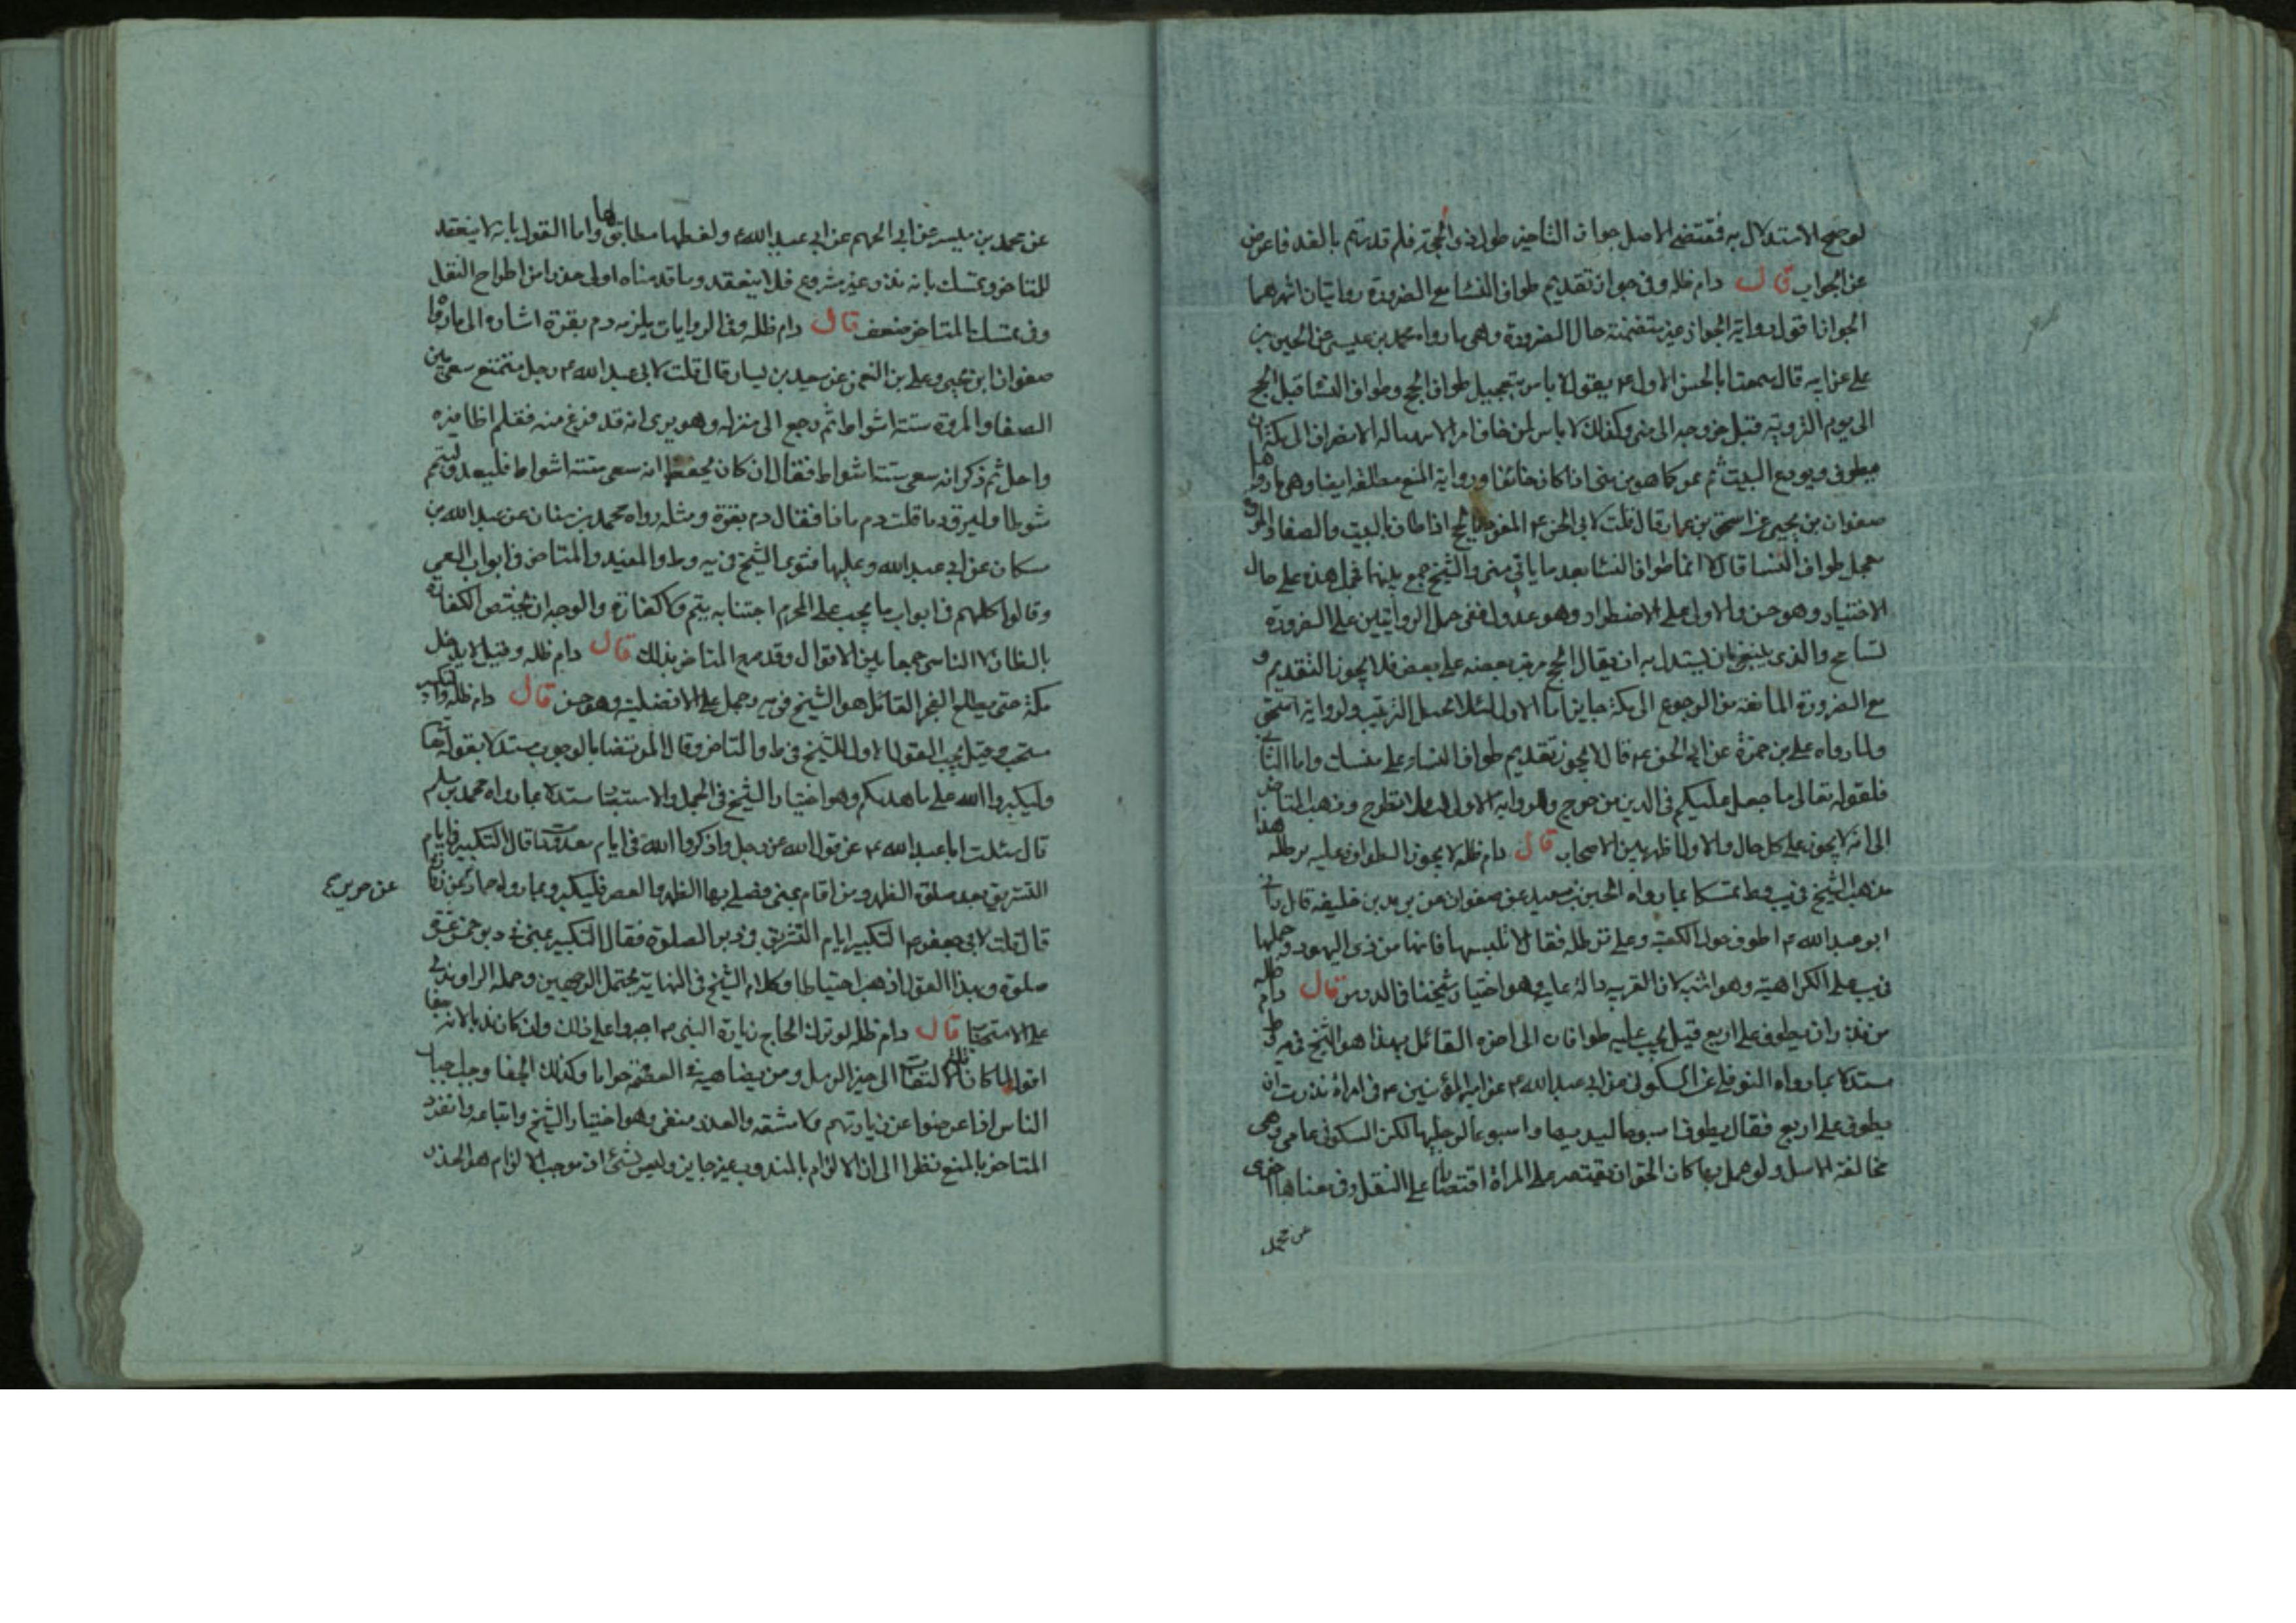 لوضح الاستدلال به فمقتضى الاصل جواز التأخير طول ذى الحجة فلم قدرتم بالغد فاعرض
عن الجواب قال دام ظله وفى جواز تقديم طواف النسا مع الضرورة روايتان اشهرهما
الجواز اقول رواية الجواز غير متضمنة حال الضرورة وهى ما رواه محمد بن عيسى عن الحسين بن
على عن ابيه قال سمعت ابا الحسن الاول ع يقول لا باس بتعجيل طواف الحج وطواف النسا قبل الحج
الى يوم التروية قبل خروجه الى منى وكذلك لا باس لمن خاف امرا لا يتهيا له الانصراف الى مكة ان
يطوف ويودع البيت ثم يمر كما هو من منى اذا كان خائفا ورواية المنع مطلقه ايضا وهى ما رواها
صفوان بن يحيى عن اسحق بن عمار قال قلت لابى الحسن ع المفرد بالحج اذا طاف بالبيت والصفا والمروة
يعجل طواف النسا قال لا انما طواف النسا بعد ما ياتى منى والشيخ جمع بينهما فحمل هذه على حال
الاختيار وهو حسن والاولى على الاضطرار وهو عدول ففى حمل الروايتين على الضرورة
تسامح والذى ينبغى ان يستدل به ان يقال الحج مرتب بعضه على بعض فلا يجوز التقديم و
مع الضرورة المانعة من الرجوع الى مكة جايز اما الاول لئلا يختل الترتيب ولرواية اسحق
ولما رواه على بن حمزة عن ابى الحسن ع قال لا يجوز تقديم طواف النساء على منسك واما الثانى
فلقوله تعالى ما جعل عليكم فى الدين من حرج وللرواية الاولى وذهب المتاخر
الى انه لا يجوز على كل حال والاول اظهر بين الاصحاب قال دام ظله لا يجوز الطواف وعليه برطله هذا
مذهب الشيخ فى يب وط تمسكا بما رواه الحسين بن سعيد عن صفوان عن يزيد بن خليفه قال رآنى
ابو عبد الله ع اطوف حول الكعبة وعلى برطله فقال لا تلبسها فانها من زى اليهود وحملها
فى يب على الكراهية وهو اشبه لان القرينه دالة عليه وهو اختيار شيخنا فى الدرس قال دام ظله
من نذر ان يطوف على اربع قيل يجب عليه طوافان الى اخره القائل بهذا هو الشيخ فى يه وط
مستدلا بما رواه النوفلى عن السكونى عن ابى عبد الله ع عن امير المؤمنين ع فى امراة نذرت ان
يطوف على اربع فقال يطوف اسبوعا ليديها واسبوعا لرجليها لكن السكونى عامى وهى
مخالفة الاصل ولو عمل بها كان الحق ان يقتصر على المراة اقتصارا على النقل وفى معناها اخرى
عن محمد
عن محمد بن ميسر عن ابى الجهم عن ابى عبد الله ع ولفظها مطابق لها واما القول بانه لا ينعقد
للمتاخر وتمسك بانه نذر غير مشروع فلا ينعقد وما قدمناه اولى حذرا من اطراح النقل
وفى تمسك المتاخر ضعف قال دام ظله وفى الروايات يلزمه دم بقرة اشاره الى ما رواه
صفوان ابن يحيى وعلى بن النعمن عن سعيد بن يسار قال قلت لابى عبد الله ع رجل متمتع سعى بين
الصفا والمروة ستة اشواط ثم رجع الى منزله وهو يرى انه قد فرغ منه فقلم اظافيره
واحل ثم ذكر انه سعى ستة اشواط فقال ان كان يحفظ انه سعى ستة اشواط فليعد وليتم
شوطا وليرق دما قلت دم ماذا فقال دم بقرة ومثله رواه محمد بن سنان عن عبد الله بن
مسكان عن ابى عبد الله وعليها فتوى الشيخ فى يه وط والمفيد والمتاخر فى ابواب السعى
وقالوا كلهم فى ابواب ما يجب على المحرم اجتنابه يتم ولا كفارة والوجه ان يختص الكفارة
بالظان لا الناسى جمعا بين الاقوال وقد صرح المتاخر بذلك قال دام ظله وقيل لا يدخل
مكة حتى يطلع الفجر القائل هو الشيخ فى يه وحمل على الافضلية وهو حسن قال دام ظله والتكبير
مستحب وقيل يجب القول الاول للشيخ فى ط والمتاخر وقال المرتضى بالوجوب مستدلا بقوله تعالى
وليكبروا الله على ما هديكم وهو اختيار الشيخ فى الجمل والاستبصار مستدلا بما رواه محمد بن مسلم
قال سئلت ابا عبد الله ع عن قول الله عز وجل واذكروا الله فى ايام معدودات قال التكبير فى ايام
التشريق بعد صلوة الظهر ومن اقام بمنى فصلى بها الظهر والعصر فليكبر وبما رواه حماد عن زرارة
عن حريز صح
قال قلت لابى جعفر ع التكبير ايام التشريق فى دبر الصلوة فقال التكبير بمنى فى دبر خمس عشرة
صلوة وبهذا القول اذهب احتياطا وكلام الشيخ فى النهاية يحتمل الوجهين وحمله الراوندى
على الاستحباب قال دام ظله لو ترك الحاج زيارة النبى ص اجبروا على ذلك وان كان ندبا لانه جفا
اقول لما كان ومن يضاهيه فى العظم حراما وكذلك الجفا وجب اجبار
الناس اذا عرضوا عن زيارتهم ولا مشقه والعذر منفى وهو اختيار الشيخ واتباعه وانفرد
المتاخر بالمنع نظرا الى ان الالزام بالمندوب غير جايز وليس بشئ اذ موجب الالزام هو الحذر